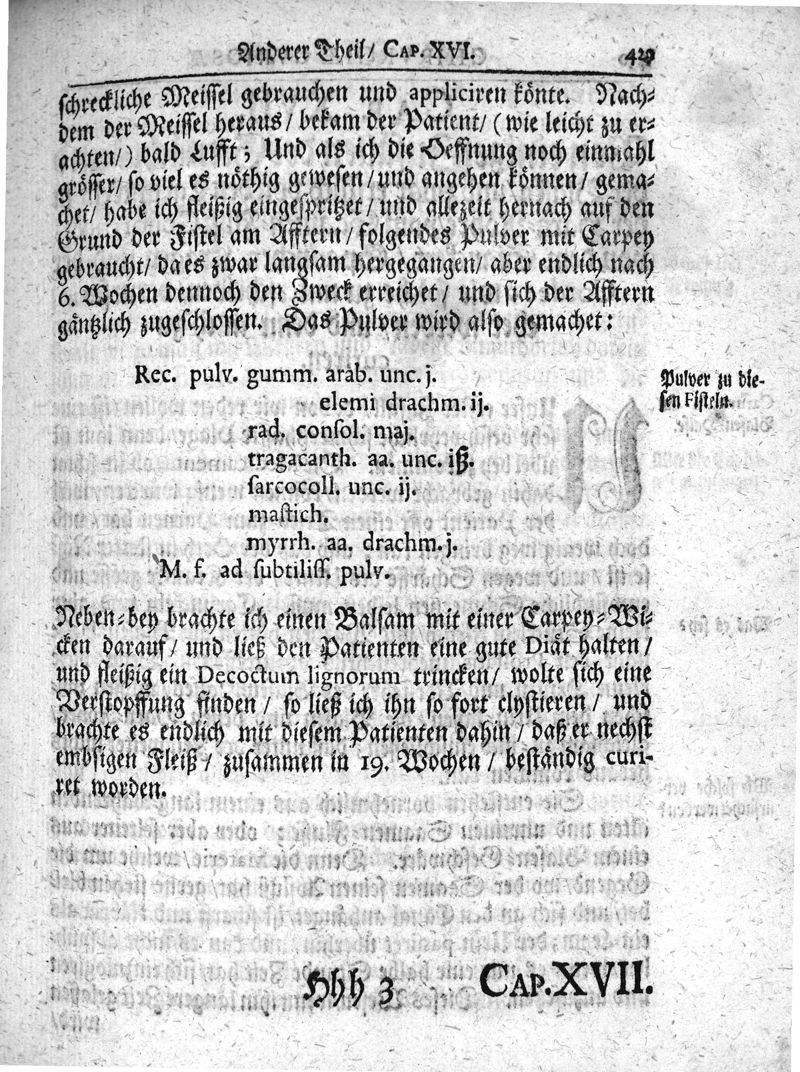 Anderer Theil/ CAP. XVI. 429
schreckliche Meissel gebrauchen und appliciren könte. Nach-
dem der Meissel heraus/ bekam der Patient/ (wie leicht zu er-
achten/) bald Lufft; Und als ich die Oeffnung noch einmahl
grösser/ so viel es nöthig gewesen/ und angehen können/ gema-
chet/ habe ich fleißig eingespritzet/ und allezeit hernach auf den
Grund der Fistel am Afftern/ folgendes Pulver mit Carpey
gebraucht/ da es zwar langsam hergegangen/ aber endlich nach
6. Wochen dennoch den Zweck erreichet/ und sich der Afftern
gäntzlich zugeschlossen. Das Pulver wird also gemachet:
Rec. pulv. gumm. arab. unc. j.
elemi drachm. ij.
rad. consol. maj.
tragacanth. aa. unc. iß.
sarcocoll. unc. ij.
mastich.
myrrh. aa. drachm. j.
M. f. ad subtiliss. pulv.
Pulver zu die-
sen Fisteln.
Neben-bey brachte ich einen Balsam mit einer Carpey-Wi-
cken darauf/ und ließ den Patienten eine gute Diät halten/
und fleißig ein Decoctum lignorum trincken/ wolte sich eine
Verstopffung finden/ so ließ ich ihn so fort clystieren/ und
brachte es endlich mit diesem Patienten dahin/ daß er nechst
embsigen Fleiß/ zusammen in 19. Wochen/ beständig curi-
ret worden.
Hhh 3 CAP. XVII.